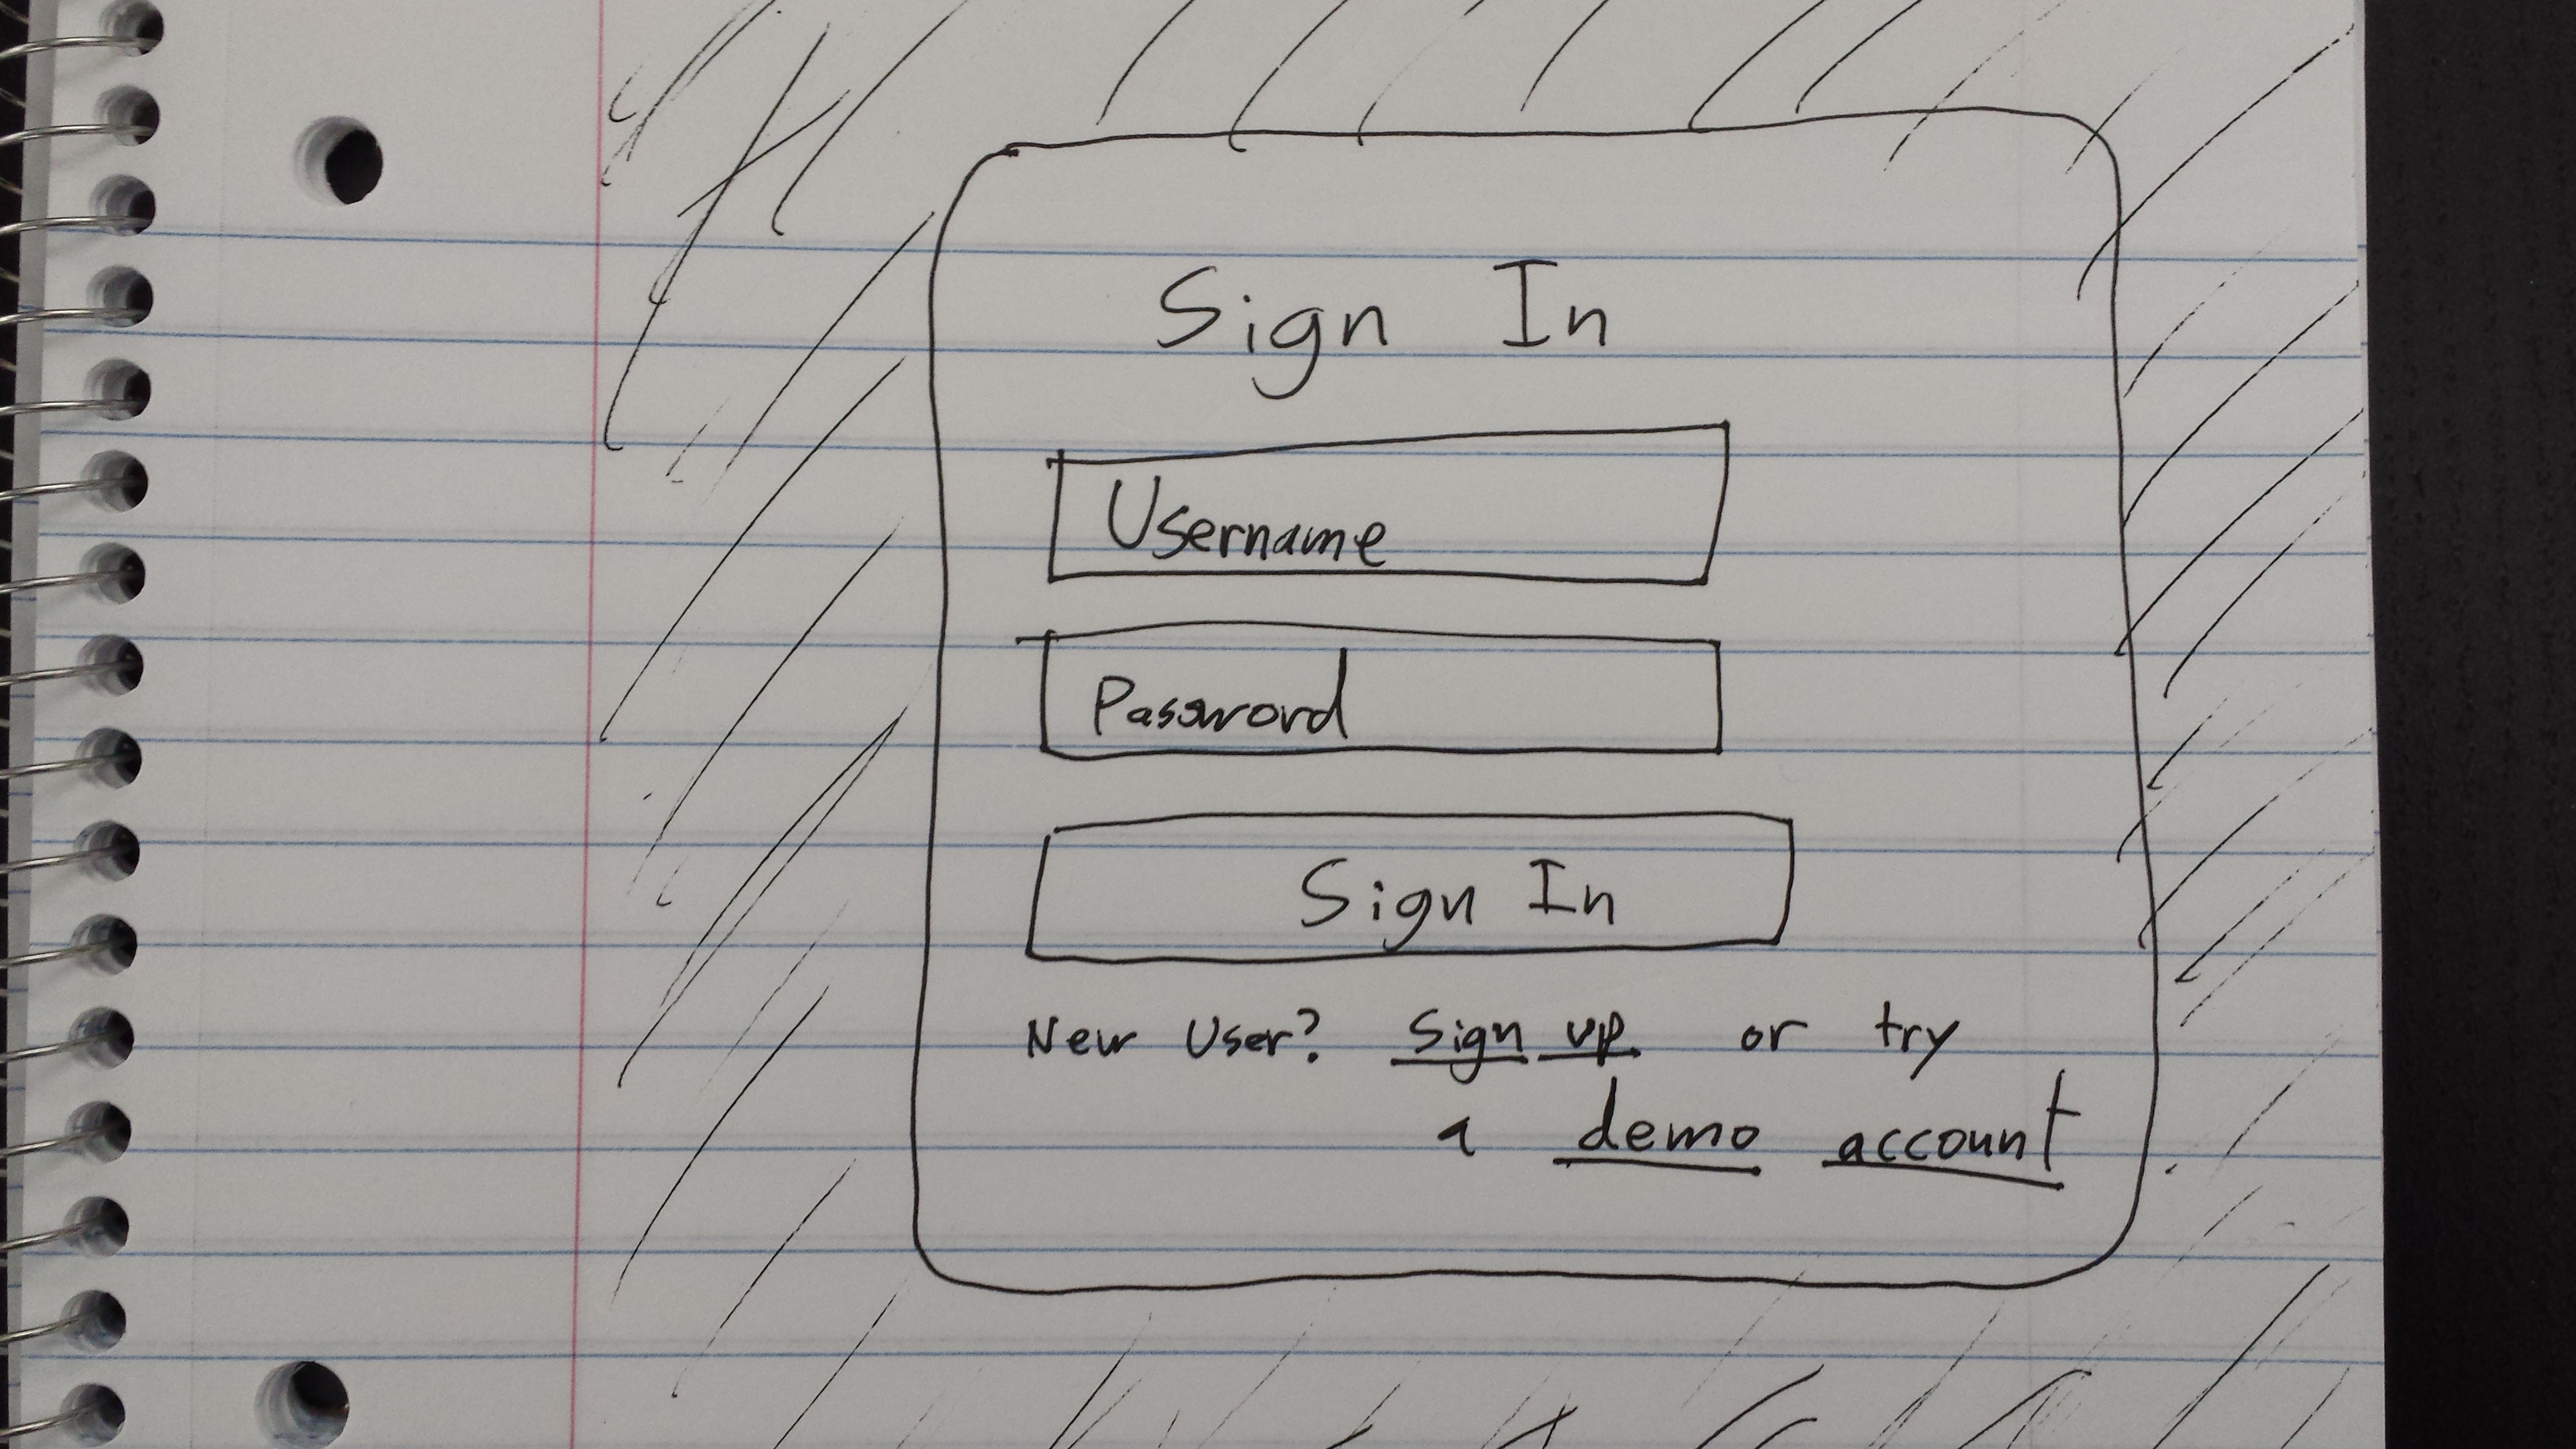 Sign In
Username
Password
Sign In
New User? Sign up or try
a demo account